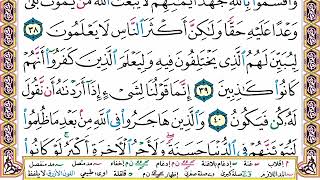 وَأَقْسَمُوا۟ بِٱللَّهِ جَهْدَ أَيْمَٰنِهِمْ لَا يَبْعَثُ ٱللَّهُ مَن يَمُوتُ بَلَىٰ
وَعْدًا عَلَيْهِ حَقًّا وَلَٰكِنَّ أَكْثَرَ ٱلنَّاسِ لَا يَعْلَمُونَ ٣٨
لِيُبَيِّنَ لَهُمُ ٱلَّذِى يَخْتَلِفُونَ فِيهِ وَلِيَعْلَمَ ٱلَّذِينَ كَفَرُوٓا۟ أَنَّهُمْ
كَانُوا۟ كَٰذِبِينَ ٣٩ إِنَّمَا قَوْلُنَا لِشَىْءٍ إِذَآ أَرَدْنَٰهُ أَن نَّقُولَ
لَهُۥ كُن فَيَكُونُ ٤٠ وَٱلَّذِينَ هَاجَرُوا۟ فِى ٱللَّهِ مِنۢ بَعْدِ مَا ظُلِمُوا۟
لَنُبَوِّئَنَّهُمْ فِى ٱلدُّنْيَا حَسَنَةً وَلَأَجْرُ ٱلْءَاخِرَةِ أَكْبَرُ لَوْ كَانُوا۟